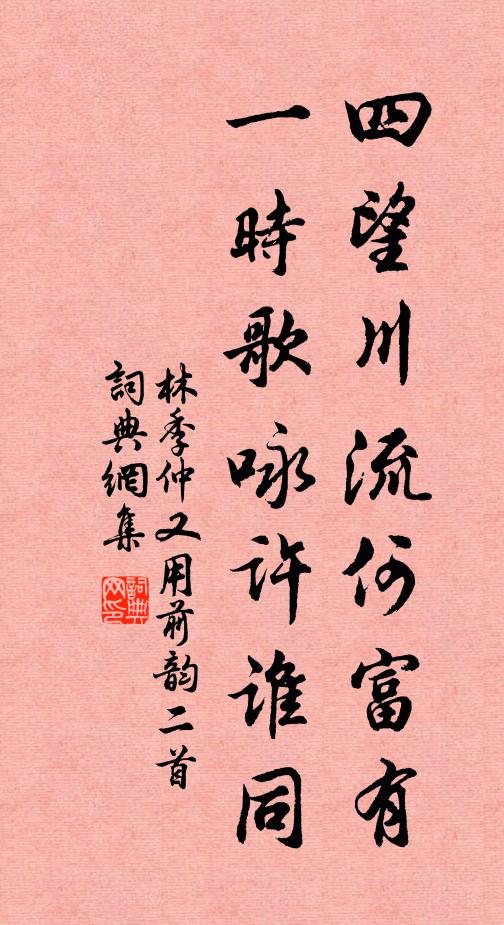 四望川流何富有
一時歌咏許誰同
林季仲又用前韵二首
詞典網集
詞典
网印